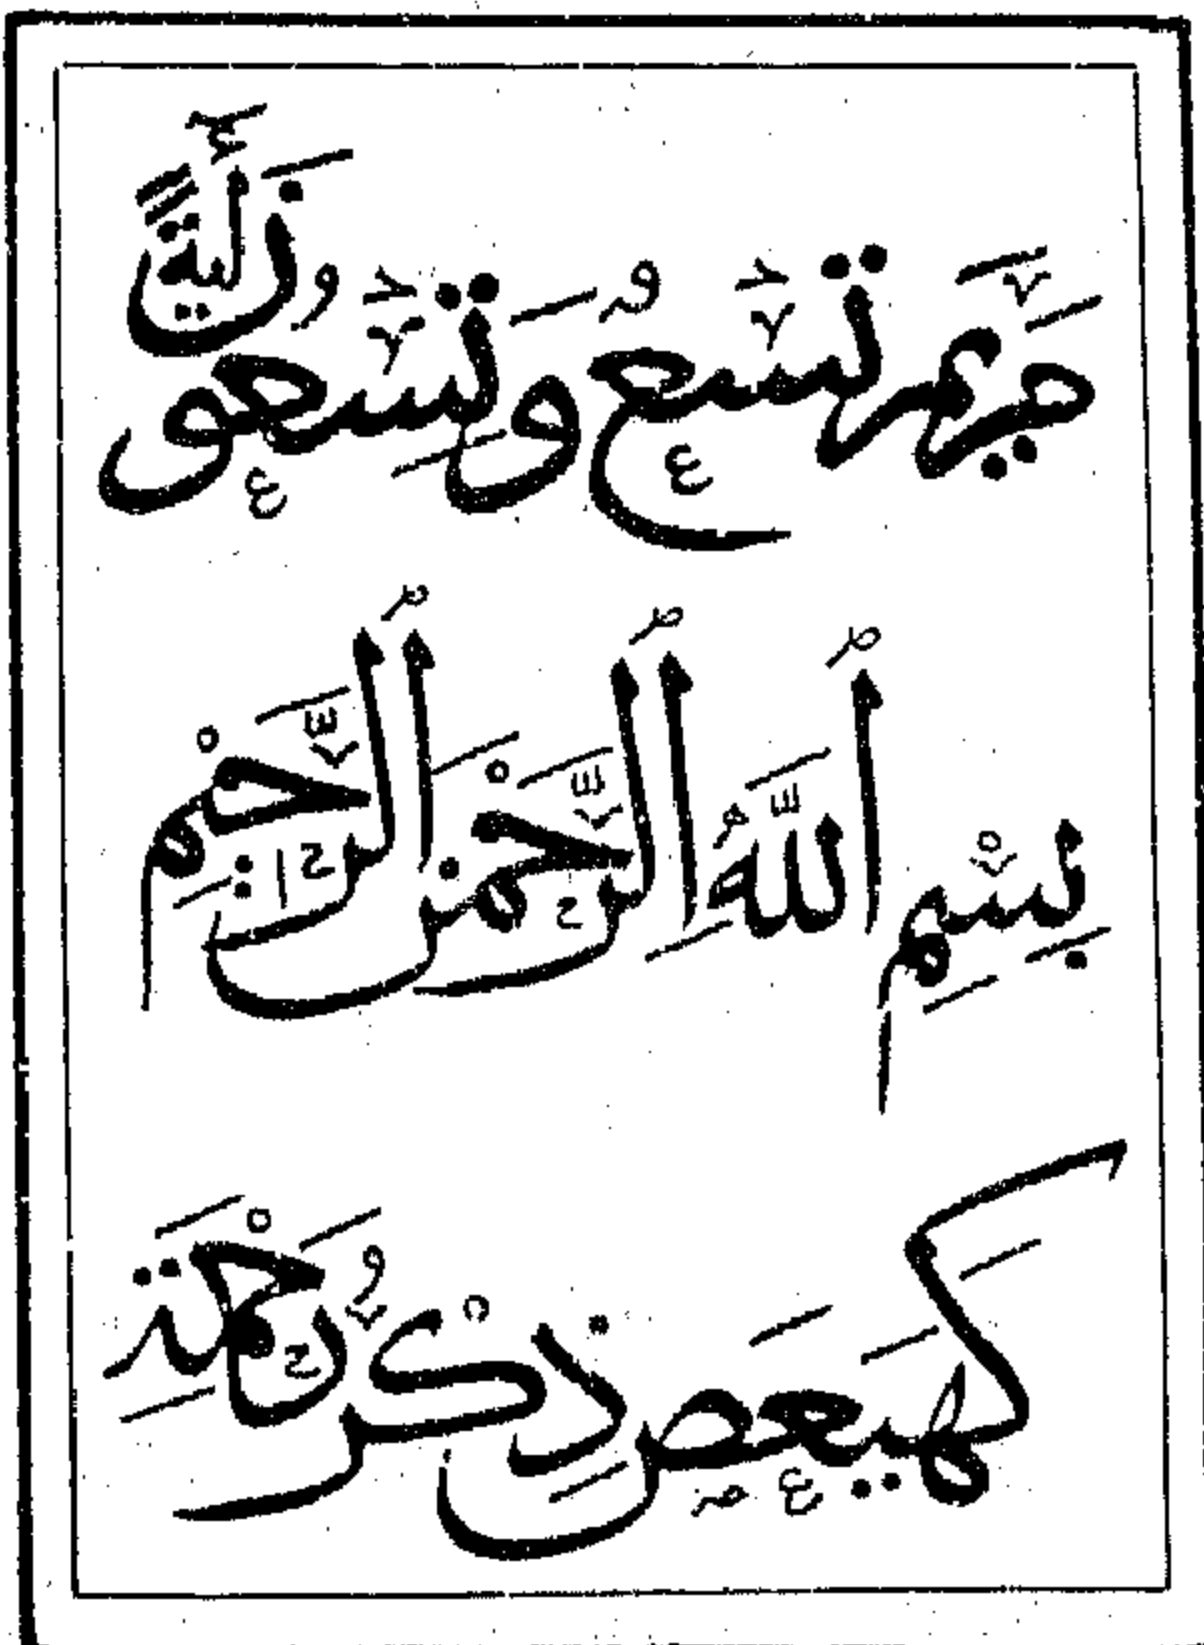 مَرْيَمَ تِسْعٌ وَتِسْعُونَ آيَةً
بِسْمِ اللَّهِ الرَّحْمَنِ الرَّحِيمِ
كهيعص ذِكْرُ رَحْمَتِ